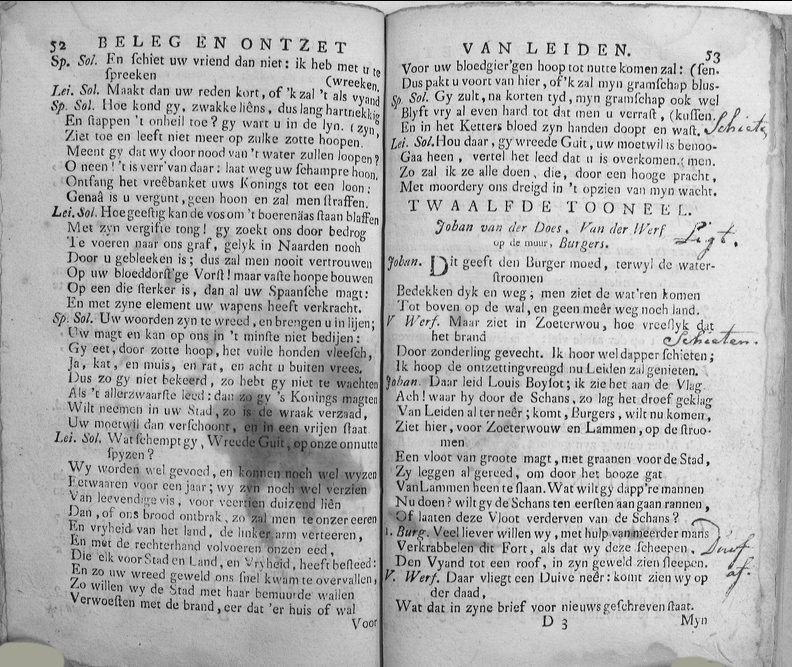 52 BELEG EN ONTZET
Sp. Sol. En ſchiet uw vriend dan niet: ik heb met u te
ſpreeken (wreeken.
Lei. Sol. Maakt dan uw reden kort, of 'k zal 't als vyand
Sp. Sol. Hoe kond gy, zwakke liêns, dus lang hartnekkig
En ſtappen 't onheil toe? gy wart u in de lyn. (zyn,
Ziet toe en leeft niet meer op zulke zotte hoopen.
Meent gy dat wy door nood van 't water zullen loopen?
O neen! 't is verr' van daar: laat weg uw ſchampre hoon,
Ontfang het vreêbanket uws Konings tot een loon:
Genaâ is u vergunt, geen hoon en zal men ſtraffen.
Lei. Sol. Hoe geeſtig kan de vos om 't boerenäas ſtaan blaffen
Met zyn vergifte tong! gy zoekt ons door bedrog
Te voeren naar ons graf, gelyk in Naarden noch
Door u gebleeken is; dus zal men nooit vertrouwen
Op uw bloeddorſt'ge Vorſt! maar vaſte hoope bouwen
Op een die ſterker is, dan al uw Spaanſche magt:
En met zyne element uw wapens heeft verkracht.
Sp. Sol. Uw woorden zyn te wreed, en brengen u in lijen;
Uw magt en kan op ons in 't minſte niet bedijen:
Gy eet, door zotte hoop, het vuile honden vleeſch,
Ja, kat, en muis, en rat, en acht u buiten vrees.
Dus zo gy niet bekeerd, zo hebt gy niet te wachten
Als 't allerzwaarſte leed: dan zo gy 's Konings magten
Wilt neemen in uw Stad, zo is de wraak verzaad,
Uw moetwil dan verſchoont, en in een vrijen ſtaat.
Lei. Sol. Wat ſchempt gy, Wreede Guit, op onze onnutte
ſpyzen?
Wy worden wel gevoed, en konnen noch wel wyzen
Eetwaaren voor een jaar; wy zyn noch wel verzien
Van leevendige vis, voor veertien duizend liên
Dan, of ons brood ontbrak, zo zal men te onzer eeren
En vryheid van het land, de linker arm verteeren,
En met de rechterhand volvoeren onzen eed,
Die elk voor Stad en Land, en Vryheid, heeft beſteed:
En zo uw wreed geweld ons ſnel kwam te overvallen,
Zo willen wy de Stad met haar bemuurde wallen
Verwoeſten met de brand, eer dat 'er huis of wal
Voor
VAN LEIDEN. 53
Voor uw bloedgier'gen hoop tot nutte komen zal: (ſen.
Dus pakt u voort van hier, of 'k zal myn gramſchap blus-
Sp. Sol. Gy zult, na korten tyd, myn gramſchap ook wel
Blyft vry al even hard tot dat men u verraſt, (kuſſen.
En in het Ketters bloed zyn handen doopt en waſt. Schiete
Lei. Sol. Hou daar, gy wreede Guit, uw moetwil is benoo-
Gaa heen, vertel het leed dat u is overkomen. (men.
Zo zal ik ze alle doen, die, door een hooge pracht,
Met moordery ons dreigd in 't opzien van myn wacht.
TWAALFDE TOONEEL.
Johan van der Does. Van der Werf
op de muur, Burgers. Ligt.
Johan. Dit geeft den Burger moed, terwyl de water-
ſtroomen
Bedekken dyk en weg; men ziet de wat'ren komen
Tot boven op de wal, en geen meêr weg noch land.
V Werf. Maar ziet in Zoeterwou, hoe vreeſlyk dat
het brand Schieten.
Door zonderling gevecht. Ik hoor wel dapper ſchieten;
Ik hoop de ontzettingvreugd nu Leiden zal genieten.
Johan. Daar leid Louis Boyſot; ik zie het aan de Vlag.
Ach! waar hy door de Schans, zo lag het droef geklag
Van Leiden al ter neêr; komt, Burgers, wilt nu komen,
Ziet hier, voor Zoeterwouw en Lammen, op de ſtroo-
men
Een vloot van groote magt, met graanen voor de Stad,
Zy leggen al gereed, om door het booze gat
Van Lammen heen te ſlaan. Wat wilt gy dapp're mannen
Nu doen? wilt gy de Schans ten eerſten aan gaan rannen,
Of laaten deze Vloot verderven van de Schans?
1. Burg. Veel liever willen wy, met hulp van meerder mans
Verkrabbelen dit Fort, als dat wy deze ſcheepen, Duyf
Den Vyand tot een roof, in zyn geweld zien ſleepen. af.
V. Werf. Daar vliegt een Duive neêr: komt zien wy op
der daad,
Wat dat in zyne brief voor nieuws geſchreven ſtaat.
D 3 Myn